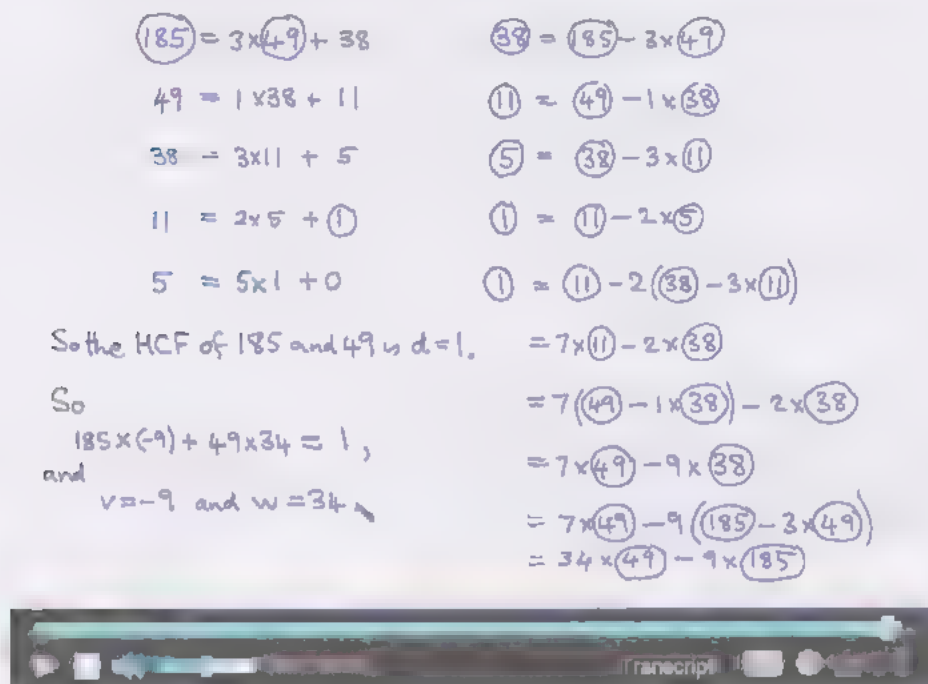 185 = 3×49 + 38
49 = 1×38 + 11
38 = 3×11 + 5
11 = 2×5 + 1
5 = 5×1 + 0
So the HCF of 185 and 49 is d=1.
So
185×(-9) + 49×34 = 1,
and
v=-9 and w=34
38 = 185 - 3×49
11 = 49 - 1×38
5 = 38 - 3×11
1 = 11 - 2×5
1 = 11 - 2(38 - 3×11)
= 7×11 - 2×38
= 7(49 - 1×38) - 2×38
= 7×49 - 9×38
= 7×49 - 9(185 - 3×49)
= 34×49 - 9×185
Transcript